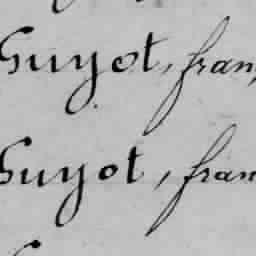 Guyot, fran
Guyot, fran